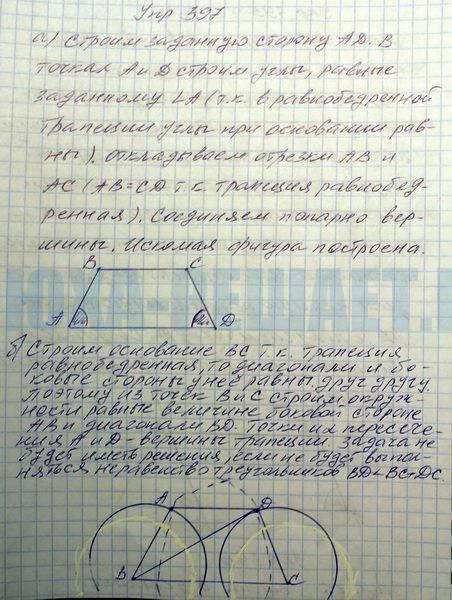 Упр 397
а) Строим заданную сторону AD. В
точках А и D строим углы, равные
заданному ∠A (т.к. в равнобедренной
трапеции углы при основании рав-
ны). Откладываем отрезки AB и
AC (AB=CD т.к. трапеция равнобед-
ренная). Соединяем попарно вер-
шины. Искомая фигура построена.
B C
A D
б) Строим основание BC т.к. трапеция
равнобедренная, то диагонали и бо-
ковые стороны у нее равны друг другу
Поэтому из точек B и C строим окруж-
ности равные величине боковой стороне
AB и диагонали BD. Точки их пересече-
ния A и D - вершины трапеции. Задача не
будет иметь решения, если не будет выпол-
няться неравенство треугольников BD<BC+DC.
A D
B C